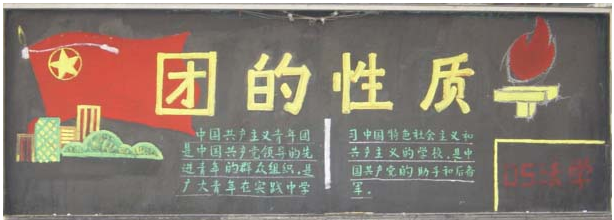 团的性质
中国共产主义青年团
是中国共产党领导的先
进青年的群众组织，是
广大青年在实践中学
习中国特色社会主义和
共产主义的学校，是中
国共产党的助手和后备
军。
05法学